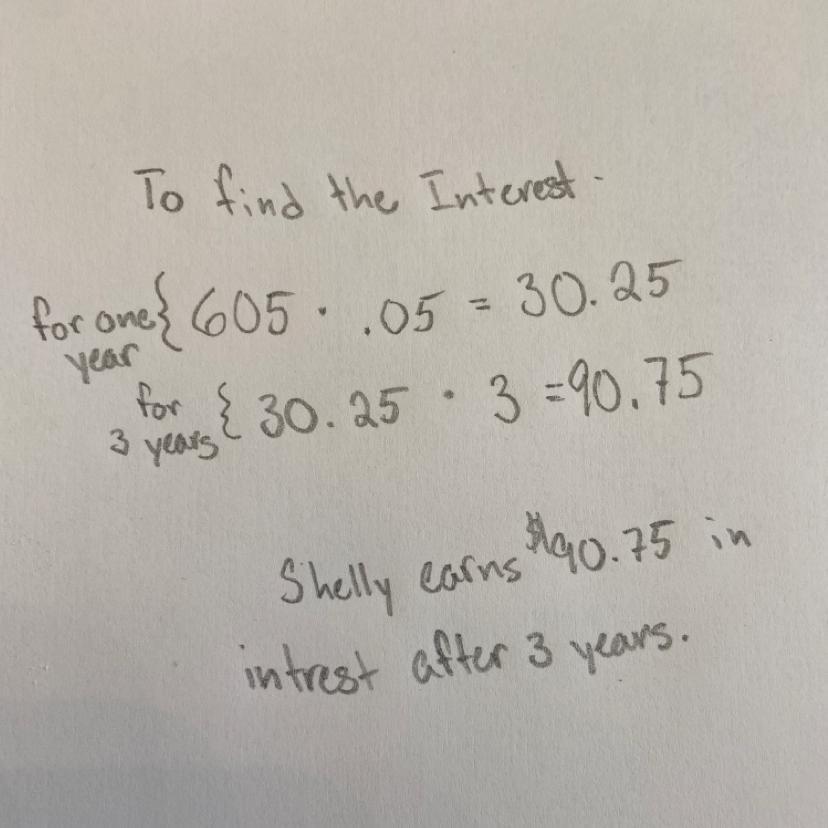 To find the Interest.
for one year { 605 · .05 = 30.25
for 3 years { 30.25 · 3 = 90.75
Shelly earns $90.75 in
intrest after 3 years.